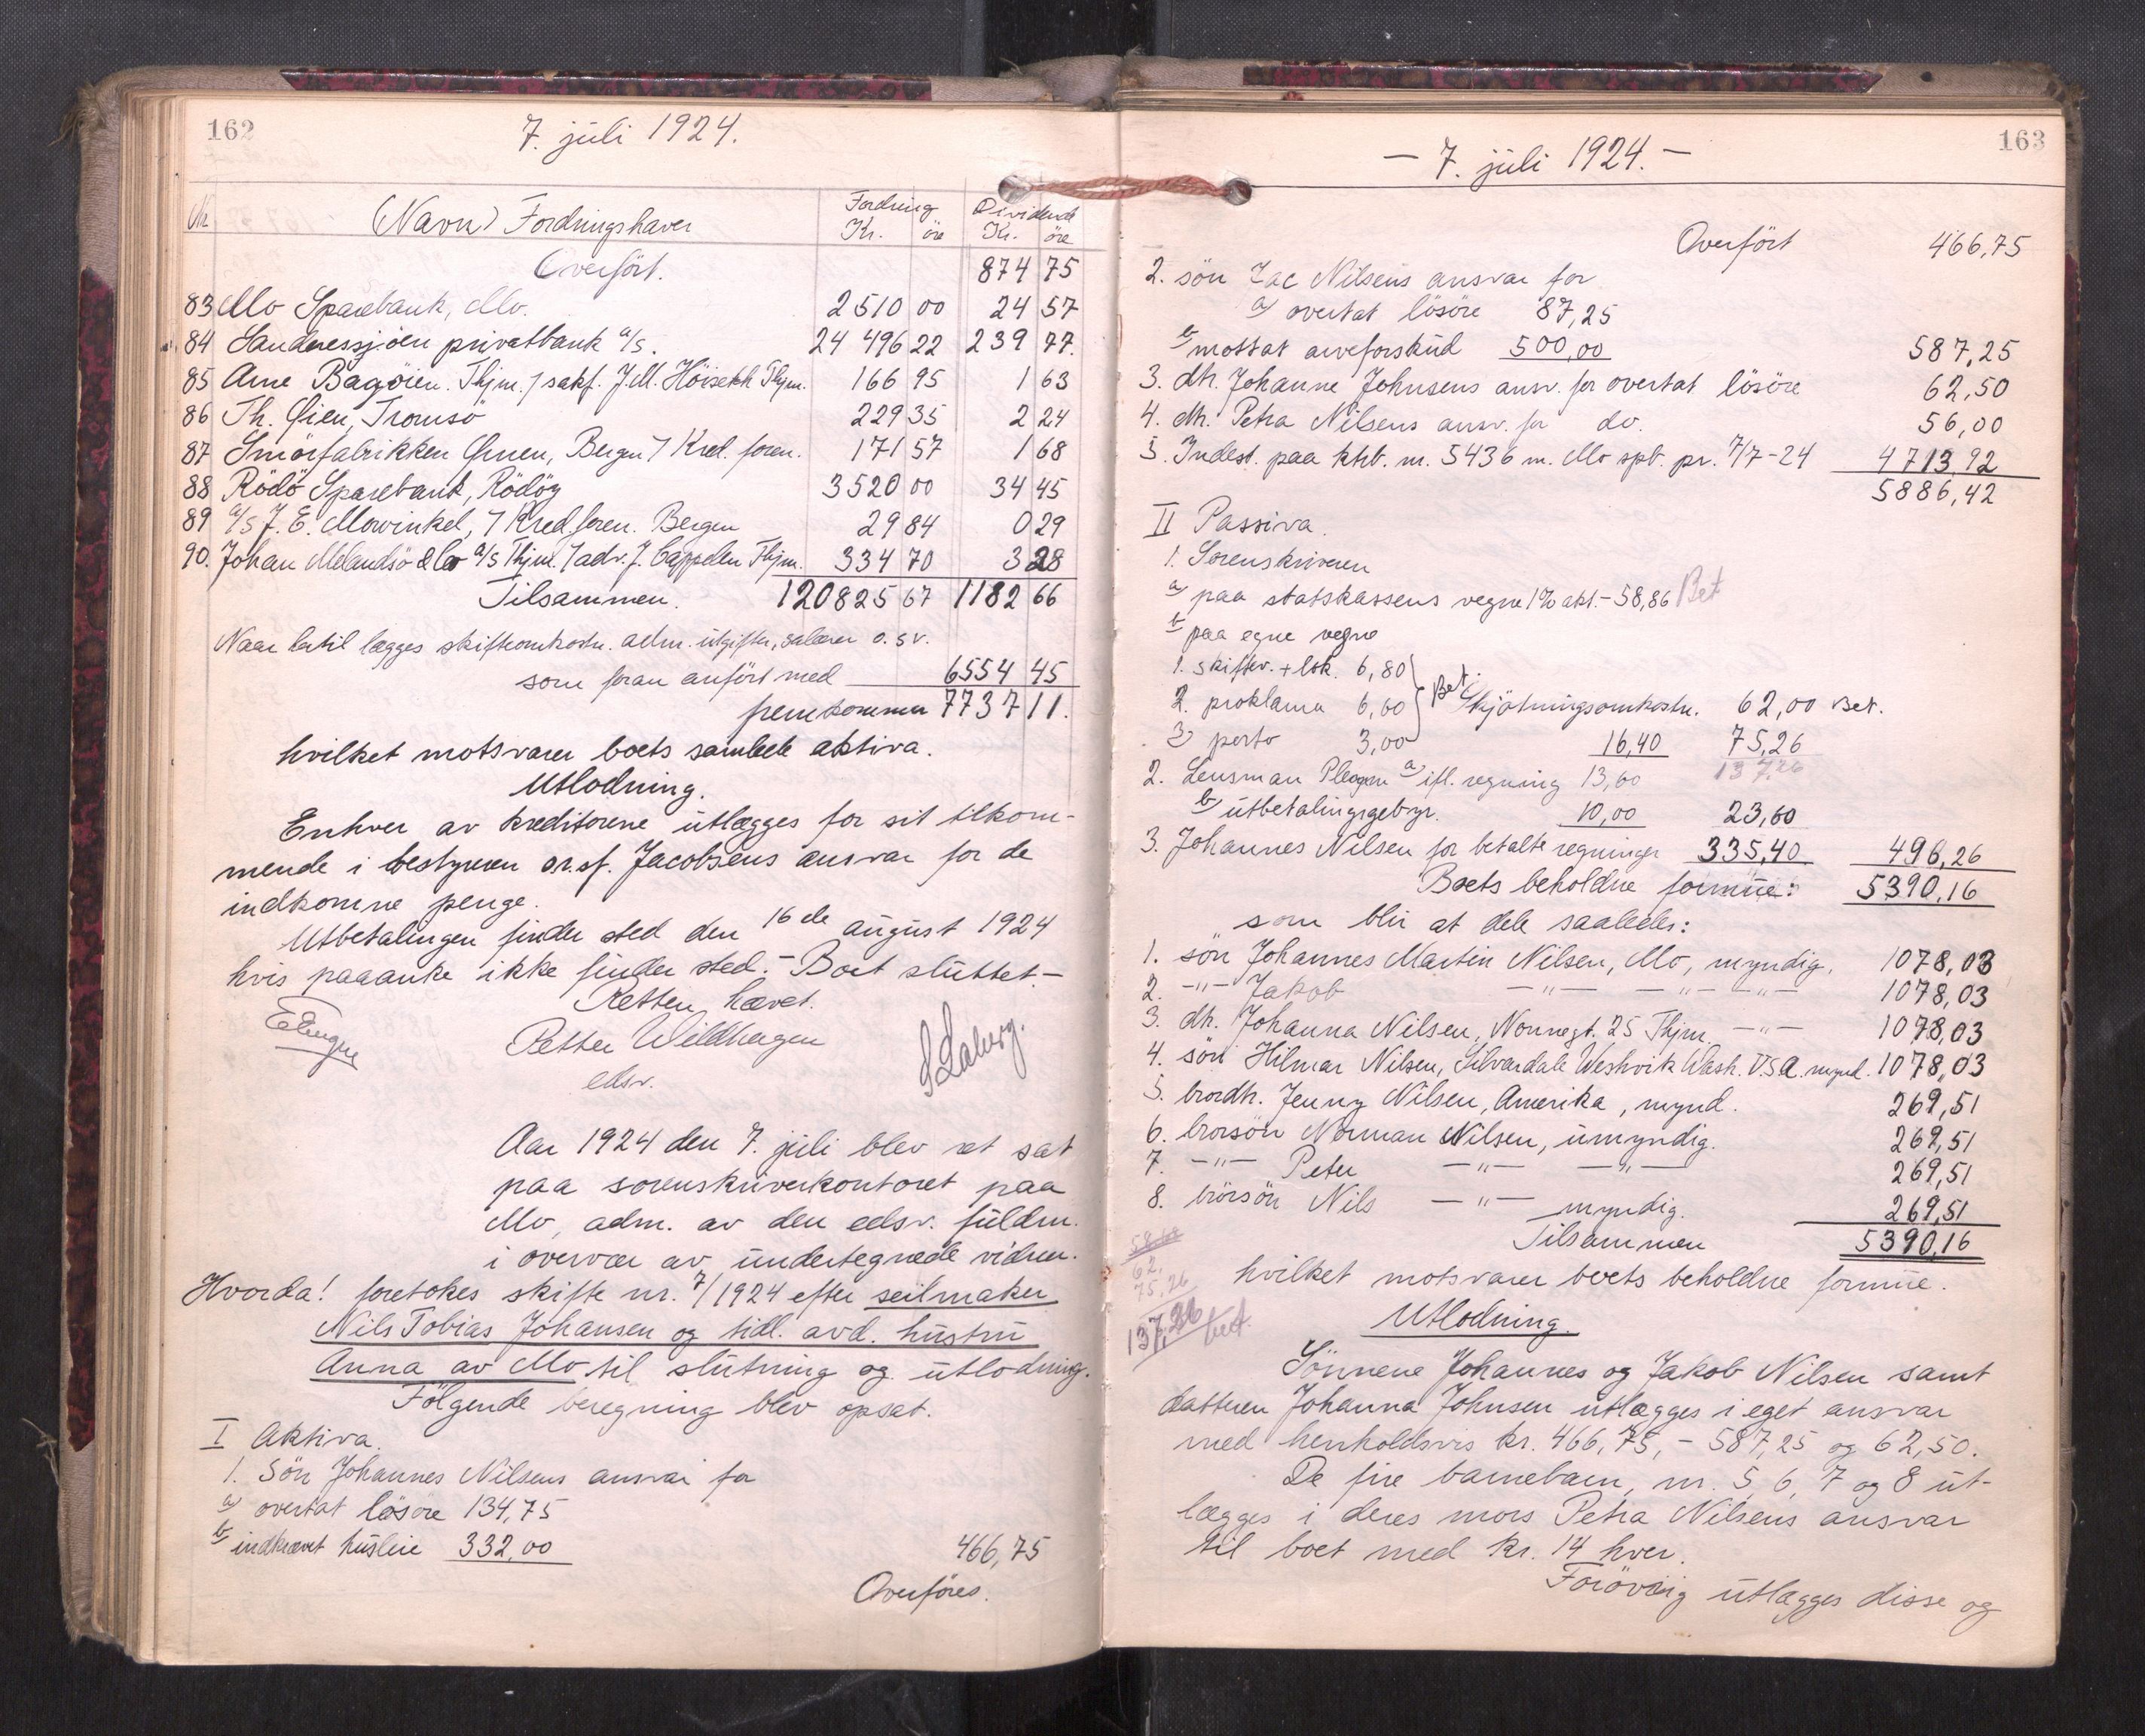 162
7. juli 1924.
Nr. (Navn) Fordringshaver Fordring Kr. öre Dividende Kr. öre
Overfört. 874 75
83 Mo Sparebank, Mo. 2510 00 24 57
84 Sandnessjøen privatbank a/s. 24 496 22 239 77.
85 Arne Bagøien. Thjm. / sakf. J.M. Höiseth Thjm. 166 95 1 63
86 Th. Øien, Tromsö 229 35 2 24
87 Smörfabrikken Ørnen, Bergen / Kred. foren. 171 57 1 68
88 Rödö Sparebank, Rödöy 3520 00 34 45
89 a/s J. E. Mowinkel, / Kredforen. Bergen 29 84 0 29
90. Johan Melandsö & Co a/s Thjm. / adv. J. Cappelen Thjm. 334 70 3 28
Tilsammen. 120825 67 1182 66
Naar hertil lægges skifteomkostn. adm. utgifter, salærer o. s v.
som foran anfört med 6554 45
fremkommer 7737 11.
hvilket motsvarer boets samlede aktiva.
Utlodning.
Enhver av kreditorene utlægges for sit tilkom-
mende i bestyreren o.r.sf. Jacobsens ansvar for de
indkomne penge.
Utbetalingen finder sted den 16de august 1924
hvis paaanke ikke finder sted. - Boet sluttet. -
Retten hævet.
Petter Wildhagen
edsv.
Aar 1924 den 7. juli blev ret sat
paa sorenskriverkontoret paa
Mo, adm. av den edsv. fuldm.
i overvær av undertegnede vidner.
Hvorda! foretokes skifte nr. 7/1924 efter seilmaker
Nils Tobias Johansen og tidl. avd. hustru
Anna av Mo til slutning og utlodning.
Fölgende beregning blev opsat.
I Aktiva.
1. Sön Johannes Nilsens ansvar for
a) overtat lösöre 134,75
b) indkrævet husleie 332,00 466,75
Overföres.
163
- 7. juli 1924. -
Overfört 466,75
2. sön Jac Nilsens ansvar for
a) overtat lösöre 87,25
b) mottat arveforskud 500,00 587,25
3. dtr. Johanne Johnsens ansv. for overtat lösöre 62,50
4. dtr. Petra Nilsens ansv. for do. 56,00
5. Indest. paa ktrb. nr. 5436 m. Mo spb. pr. 7/7-24 4713,92
5886,42
II Passiva.
1. Sorenskriveren
a) paa statskassens vegne 1% akt. - 58,86 Bet
b) paa egne vegne
1. skiftev. + lok. 6,80
2. proklama 6,60 Bet. Skjötningsomkostn. 62,00 Bet.
3) porto 3,00 16,40 75,26
137,26
2. Lensman a) ifl. regning 13,60
b) utbetalingsgebyr. 10,00 23,60
3. Johannes Nilsen for betalte regninger 335,40 496,26
Boets beholdne formue: 5390,16
som blir at dele saaledes:
1. sön Johannes Martin Nilsen, Mo, myndig. 1078,03
2. -"- Jakob -"- -"- -"- 1078,03
3. dtr. Johanna Nilsen, Nonnegt. 25 Thjm. -"- 1078,03
4. sön Hilmar Nilsen, Silvardale Weshvik Wash. U.S.A. mynd. 1078,03
5. brordtr. Jenny Nilsen, Amerika, mynd. 269,51
6. brorsön Norman Nilsen, umyndig. 269,51
7. -"- Peter -"- -"- 269,51
8. brorsön Nils -"- myndig. 269,51
Tilsammen 5390,16
62,
75,26
137,26 bet.
hvilket motsvarer boets beholdne formue.
Utlodning.
Sönnene Johannes og Jakob Nilsen samt
datteren Johanna Johnsen utlægges i eget ansvar
med henholdsvis kr. 466,75, - 587,25 og 62,50.
De fire barnebarn, nr. 5, 6, 7 og 8 ut-
lægges i deres mors Petra Nilsens ansvar
til boet med kr. 14 hver.
Forövrig utlægges disse og